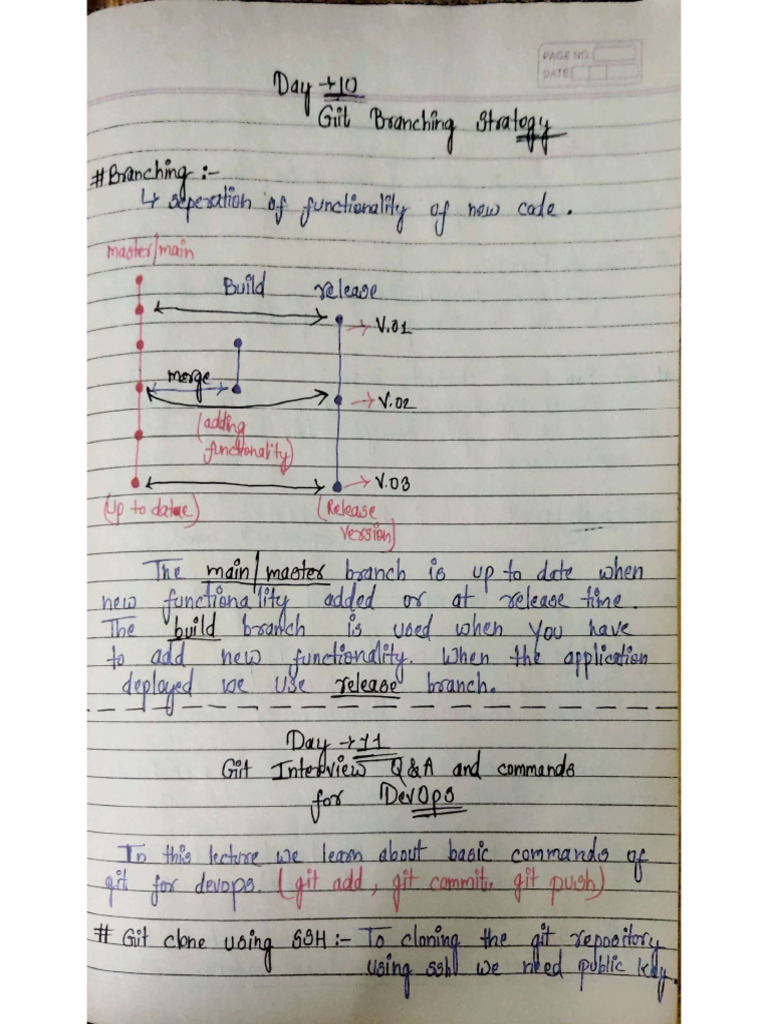 PAGE NO.
DATE
Day → 10
Git Branching Stratogy
# Branching :-
↳ seperation of functionality of new code.
master/main
Build release
→ V.01
merge
→ V.02
(adding
functionality)
→ V.03
(Up to date)
(Release
version)
The main/master branch is up to date when
new functionality added or at release time.
The build branch is used when you have
to add new functionality. When the application
deployed we use release branch.
Day → 11
Git Interview Q&A and commands
for DevOps
In this lecture we learn about basic commands of
git for devops. (git add, git commit, git push)
# Git clone using SSH :- To cloning the git repository
using ssh we need public key.